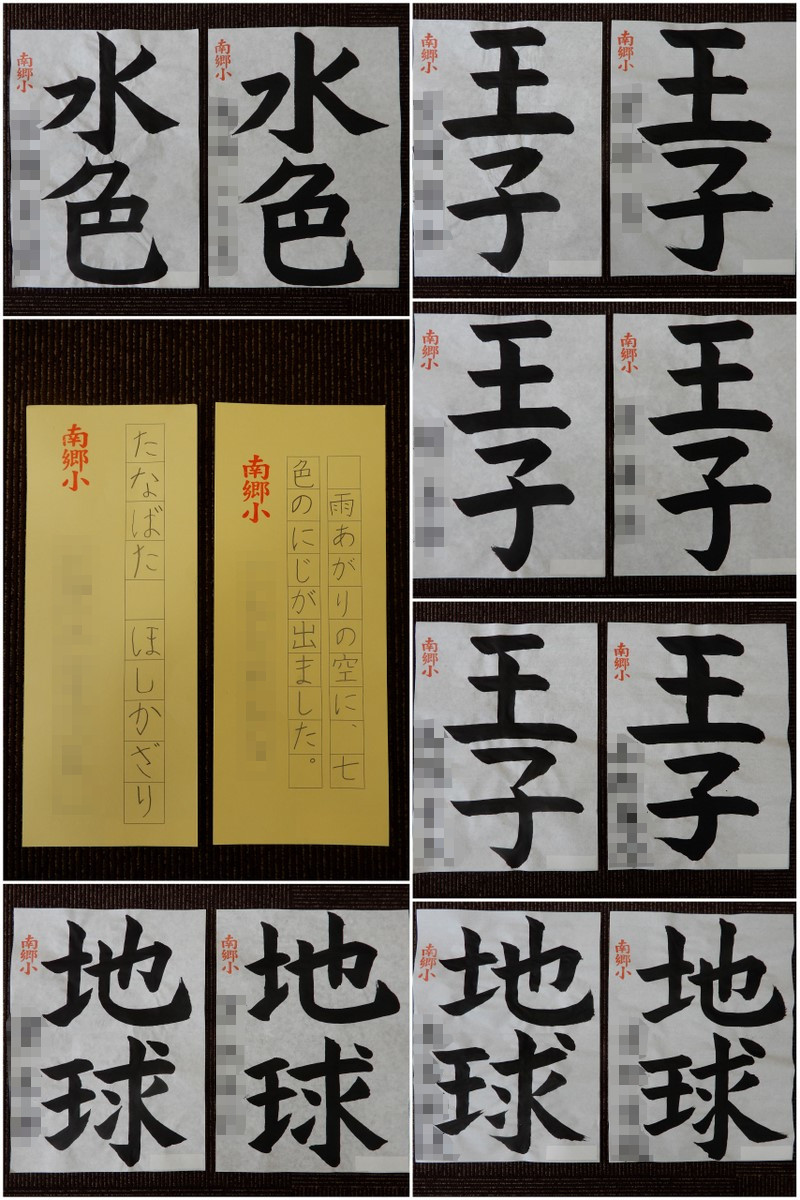 水色
南郷小
水色
南郷小
王子
南郷小
王子
南郷小
王子
南郷小
王子
南郷小
たなばた　ほしかざり
南郷小
雨あがりの空に、七
色のにじが出ました。
南郷小
王子
南郷小
王子
南郷小
地球
南郷小
地球
南郷小
地球
南郷小
地球
南郷小